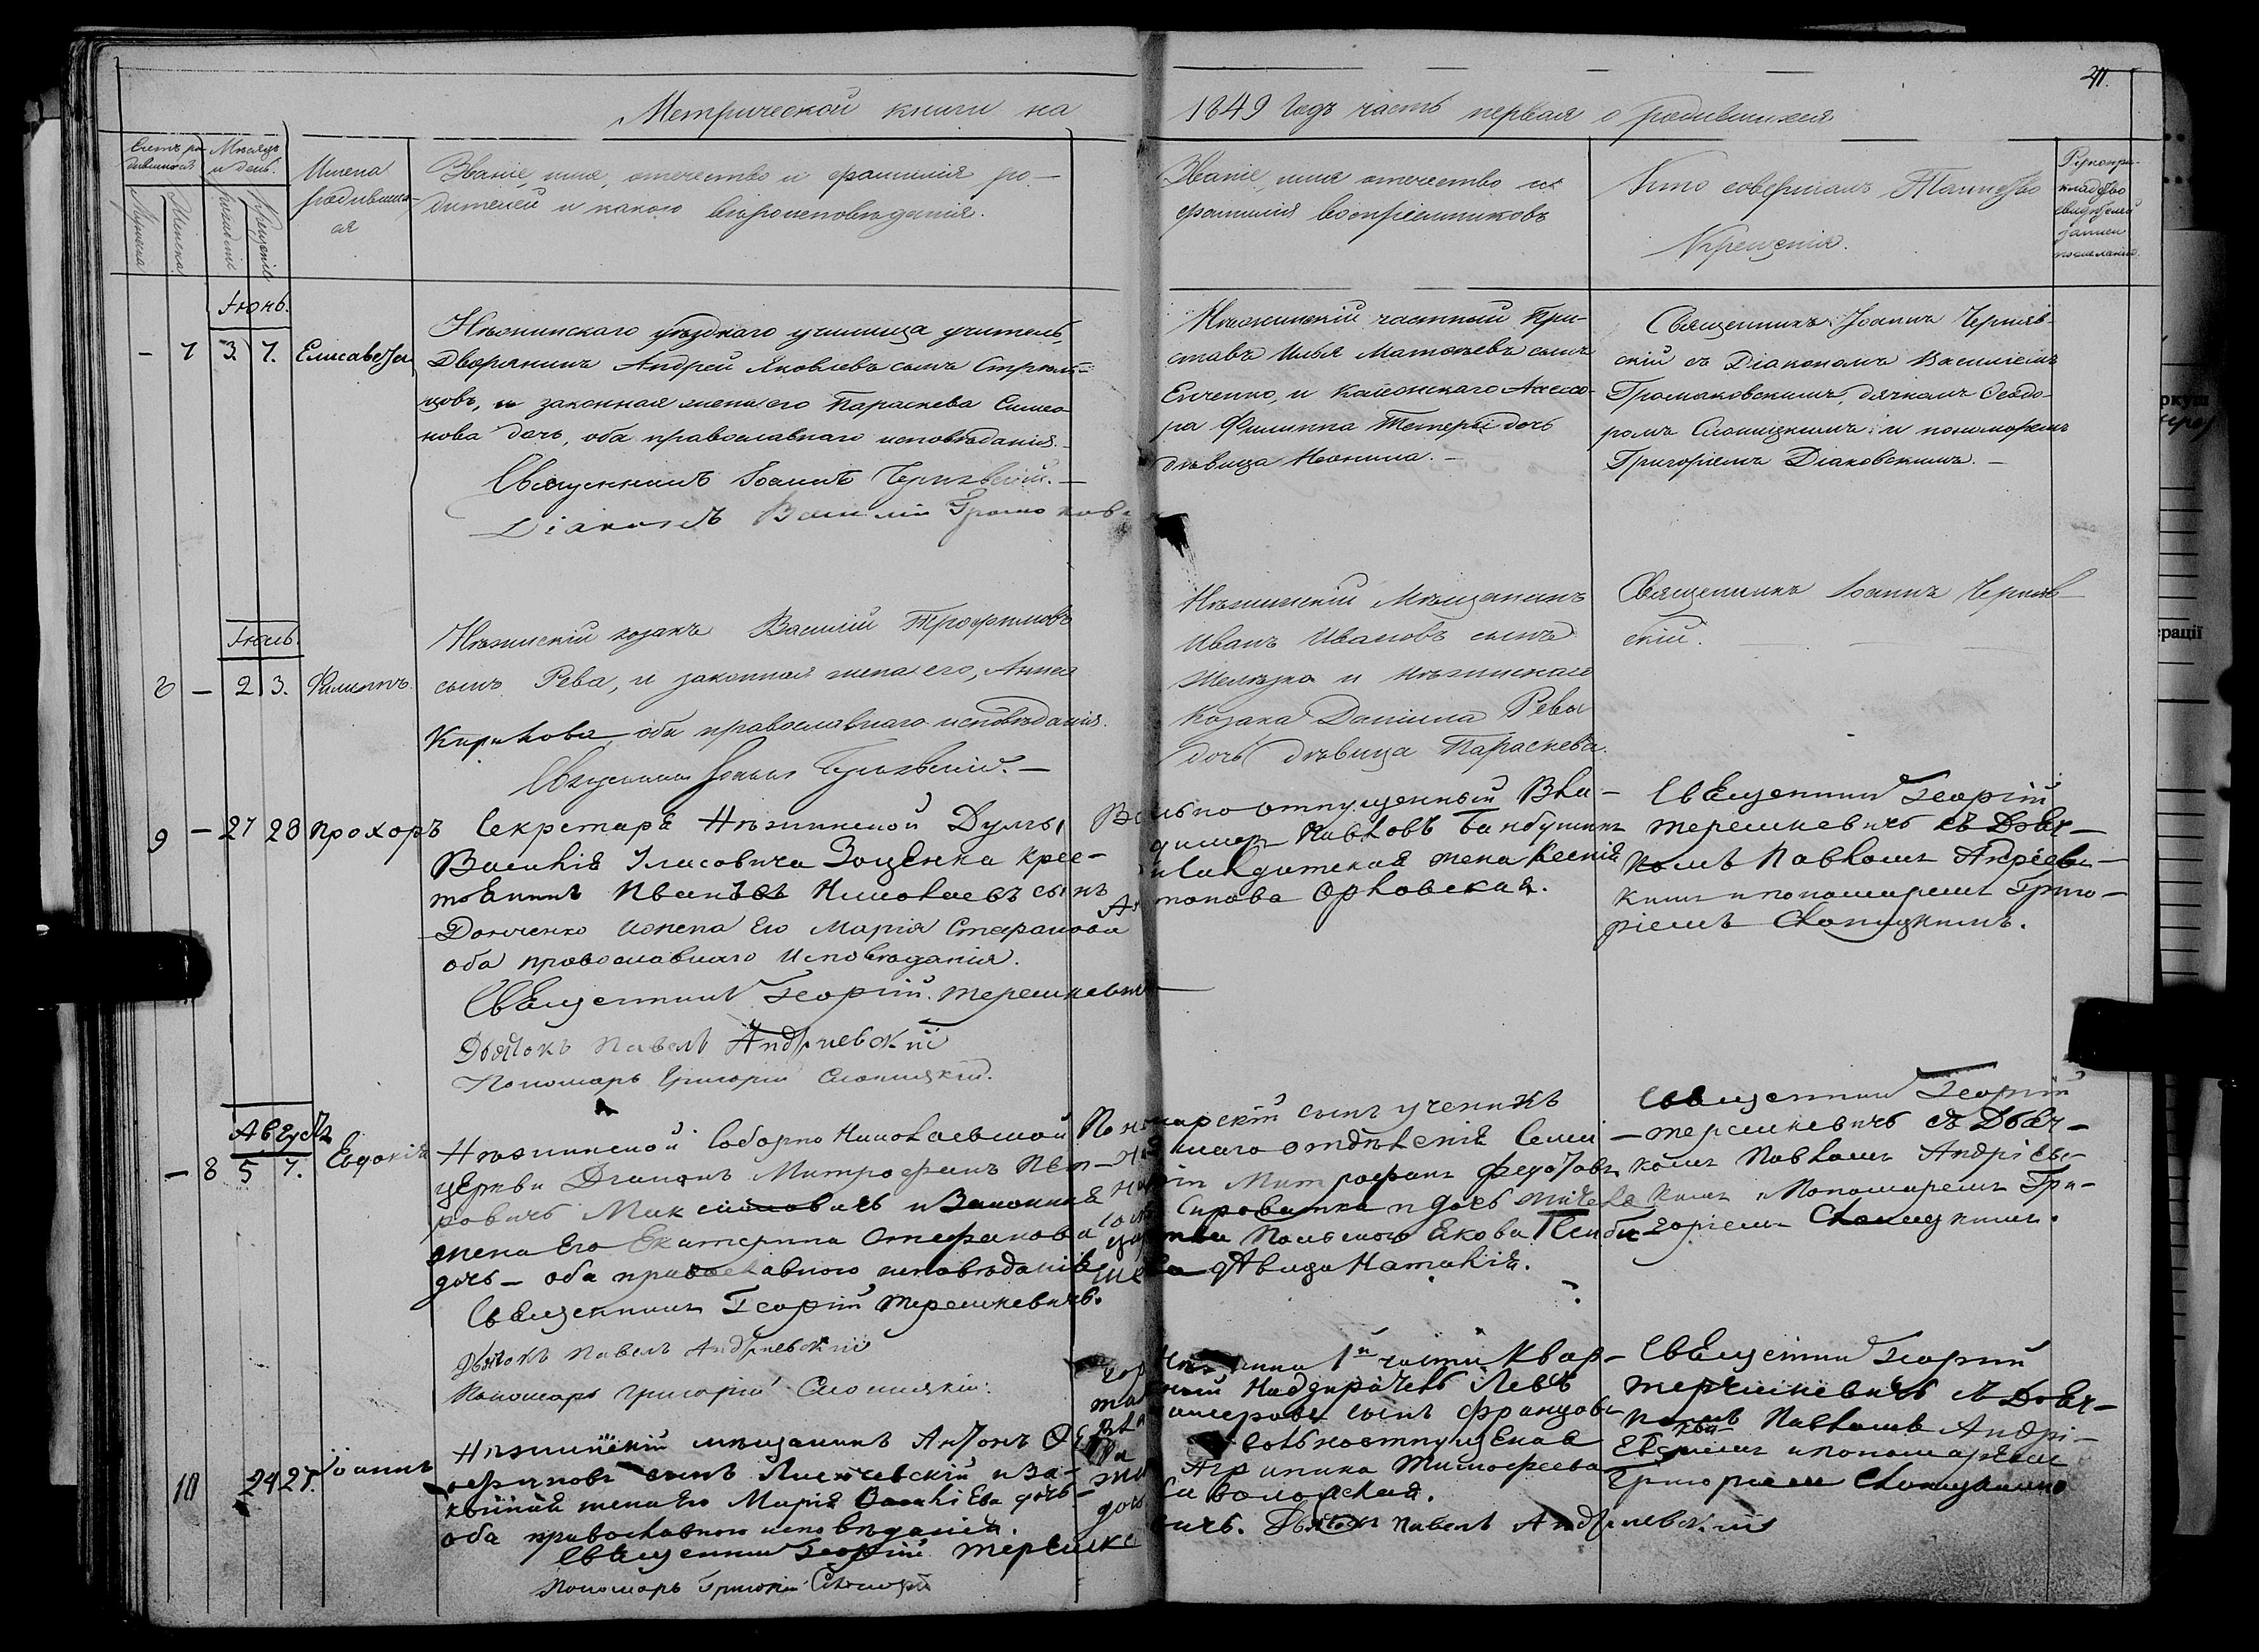 41.
Метрической книги на 1849 годъ часть первая о родившихся
Счетъ ро-
дившихся
Мѣсяцъ
и день.
Мужска
Женска
рожденія
Крещенія
Имена
родивших-
ся
Званіе, имя, отечество и фамилія ро-
дителей и какого вѣроисповѣданія.
Званіе, имя отечество и
фамилія воспріемниковъ
Кто совершалъ Таинство
Крещенія.
Рукопри-
кладство
свидѣтелей
записи
по желанію.
Іюнь.
– 7 3. 7. Елисавета
Нѣжинскаго уѣзднаго училища учитель,
Дворянинъ Андрей Яковлевъ сынъ Стрѣль-
цовъ, и законная жена его Параскева Симео-
нова дочь, оба православнаго исповѣданія.
Священникъ Іоаннъ Чернявскій. –
Діаконъ Василій Громаков
Нѣжинскій частный При-
ставъ Илья Матвѣевъ сынъ
Енченко, и Колежскаго Ассесо-
ра Филиппа Тетеры дочь
дѣвица Неонила. –
Священникъ Іоаннъ Черняв-
скій съ Діакономъ Василіемъ
Громаковскимъ, дячкомъ Ѳеодо-
ромъ Слоницкимъ и пономаремъ
Григоріемъ Діаковскимъ. –
Іюль.
8 – 2 3. Филиппъ.
Нѣжинскій козакъ Василій Трофимовъ
сынъ Рева, и законная жена его, Анна
Кирилова, оба православнаго исповѣданія.
Священникъ Іоаннъ Чернявскій. –
Нѣжинскій Мѣщанинъ
Иванъ Ивановъ сынъ
Желѣзко и нѣжинскаго
Козака Даніила Ревы
дочь дѣвица Параскева.
Священникъ Іоаннъ Черняв-
скій.
9 – 27 28 Прохоръ
Секретаря Нѣжинской Думы
Василія Власовича Зоценка крес-
тянинъ Иванъ Николаевъ сынъ
Донченко и жена Его Марія Стефанова
оба православнаго Исповѣданія.
Священникъ Георгій Терешкевичъ
Дьячокъ Павелъ Андріевскій
Пономарь Григорій Слоницкій.
Вольноотпущенный Вла-
димер Павловъ
жена Ксенія
Антонова Орловская.
Священникъ Георгій
Терешкевичъ съ Дьяч-
комъ Павломъ Андріевс-
кимъ и пономаремъ Григо-
ріемъ Слоницкимъ.
Августъ
– 8 5 7. Евдокія
Нѣжинской Соборно Николаевской
церкви Діаконъ Митрофанъ Пет-
ровичъ и Законная
жена Его Екатерина Стефанова
дочь – оба православного исповѣданія
Священникъ Георгій Терешкевичъ.
Дьячокъ Павелъ Андріевскій
Пономарь Григорій Слоницкій.
Пономарскій сынъ ученикъ
отдѣленія Семи-
наріи Митрофанъ Федотовъ
Сироватка и дочь
Царства Польского Якова
дѣвица Наталія.
Священникъ Георгій
Терешкевичъ съ Дьяч-
комъ Павломъ Андріевс-
кимъ и Пономаремъ Гри-
горіемъ Слоницкимъ.
10 24 27. Іоаннъ
Нѣжинскій мѣщанинъ Антонъ
сынъ и За-
конная жена Его Марія дочь –
оба православного исповѣданія.
Священникъ Георгій Терешкевичъ. Дьячокъ Павелъ Андріевскій
Пономарь Григорій Слоницкій
Города Нѣжина 1й части Квар-
тальный Надзиратель Левъ
сынъ Францовъ
вольноотпущеная
Агрипина Тимофеева
дочь Саволожская.
Священникъ Георгій
Терешкевичъ съ Дьяч-
комъ Павломъ Андрі-
евскимъ и пономаремъ
Григоріемъ Слоницкимъ